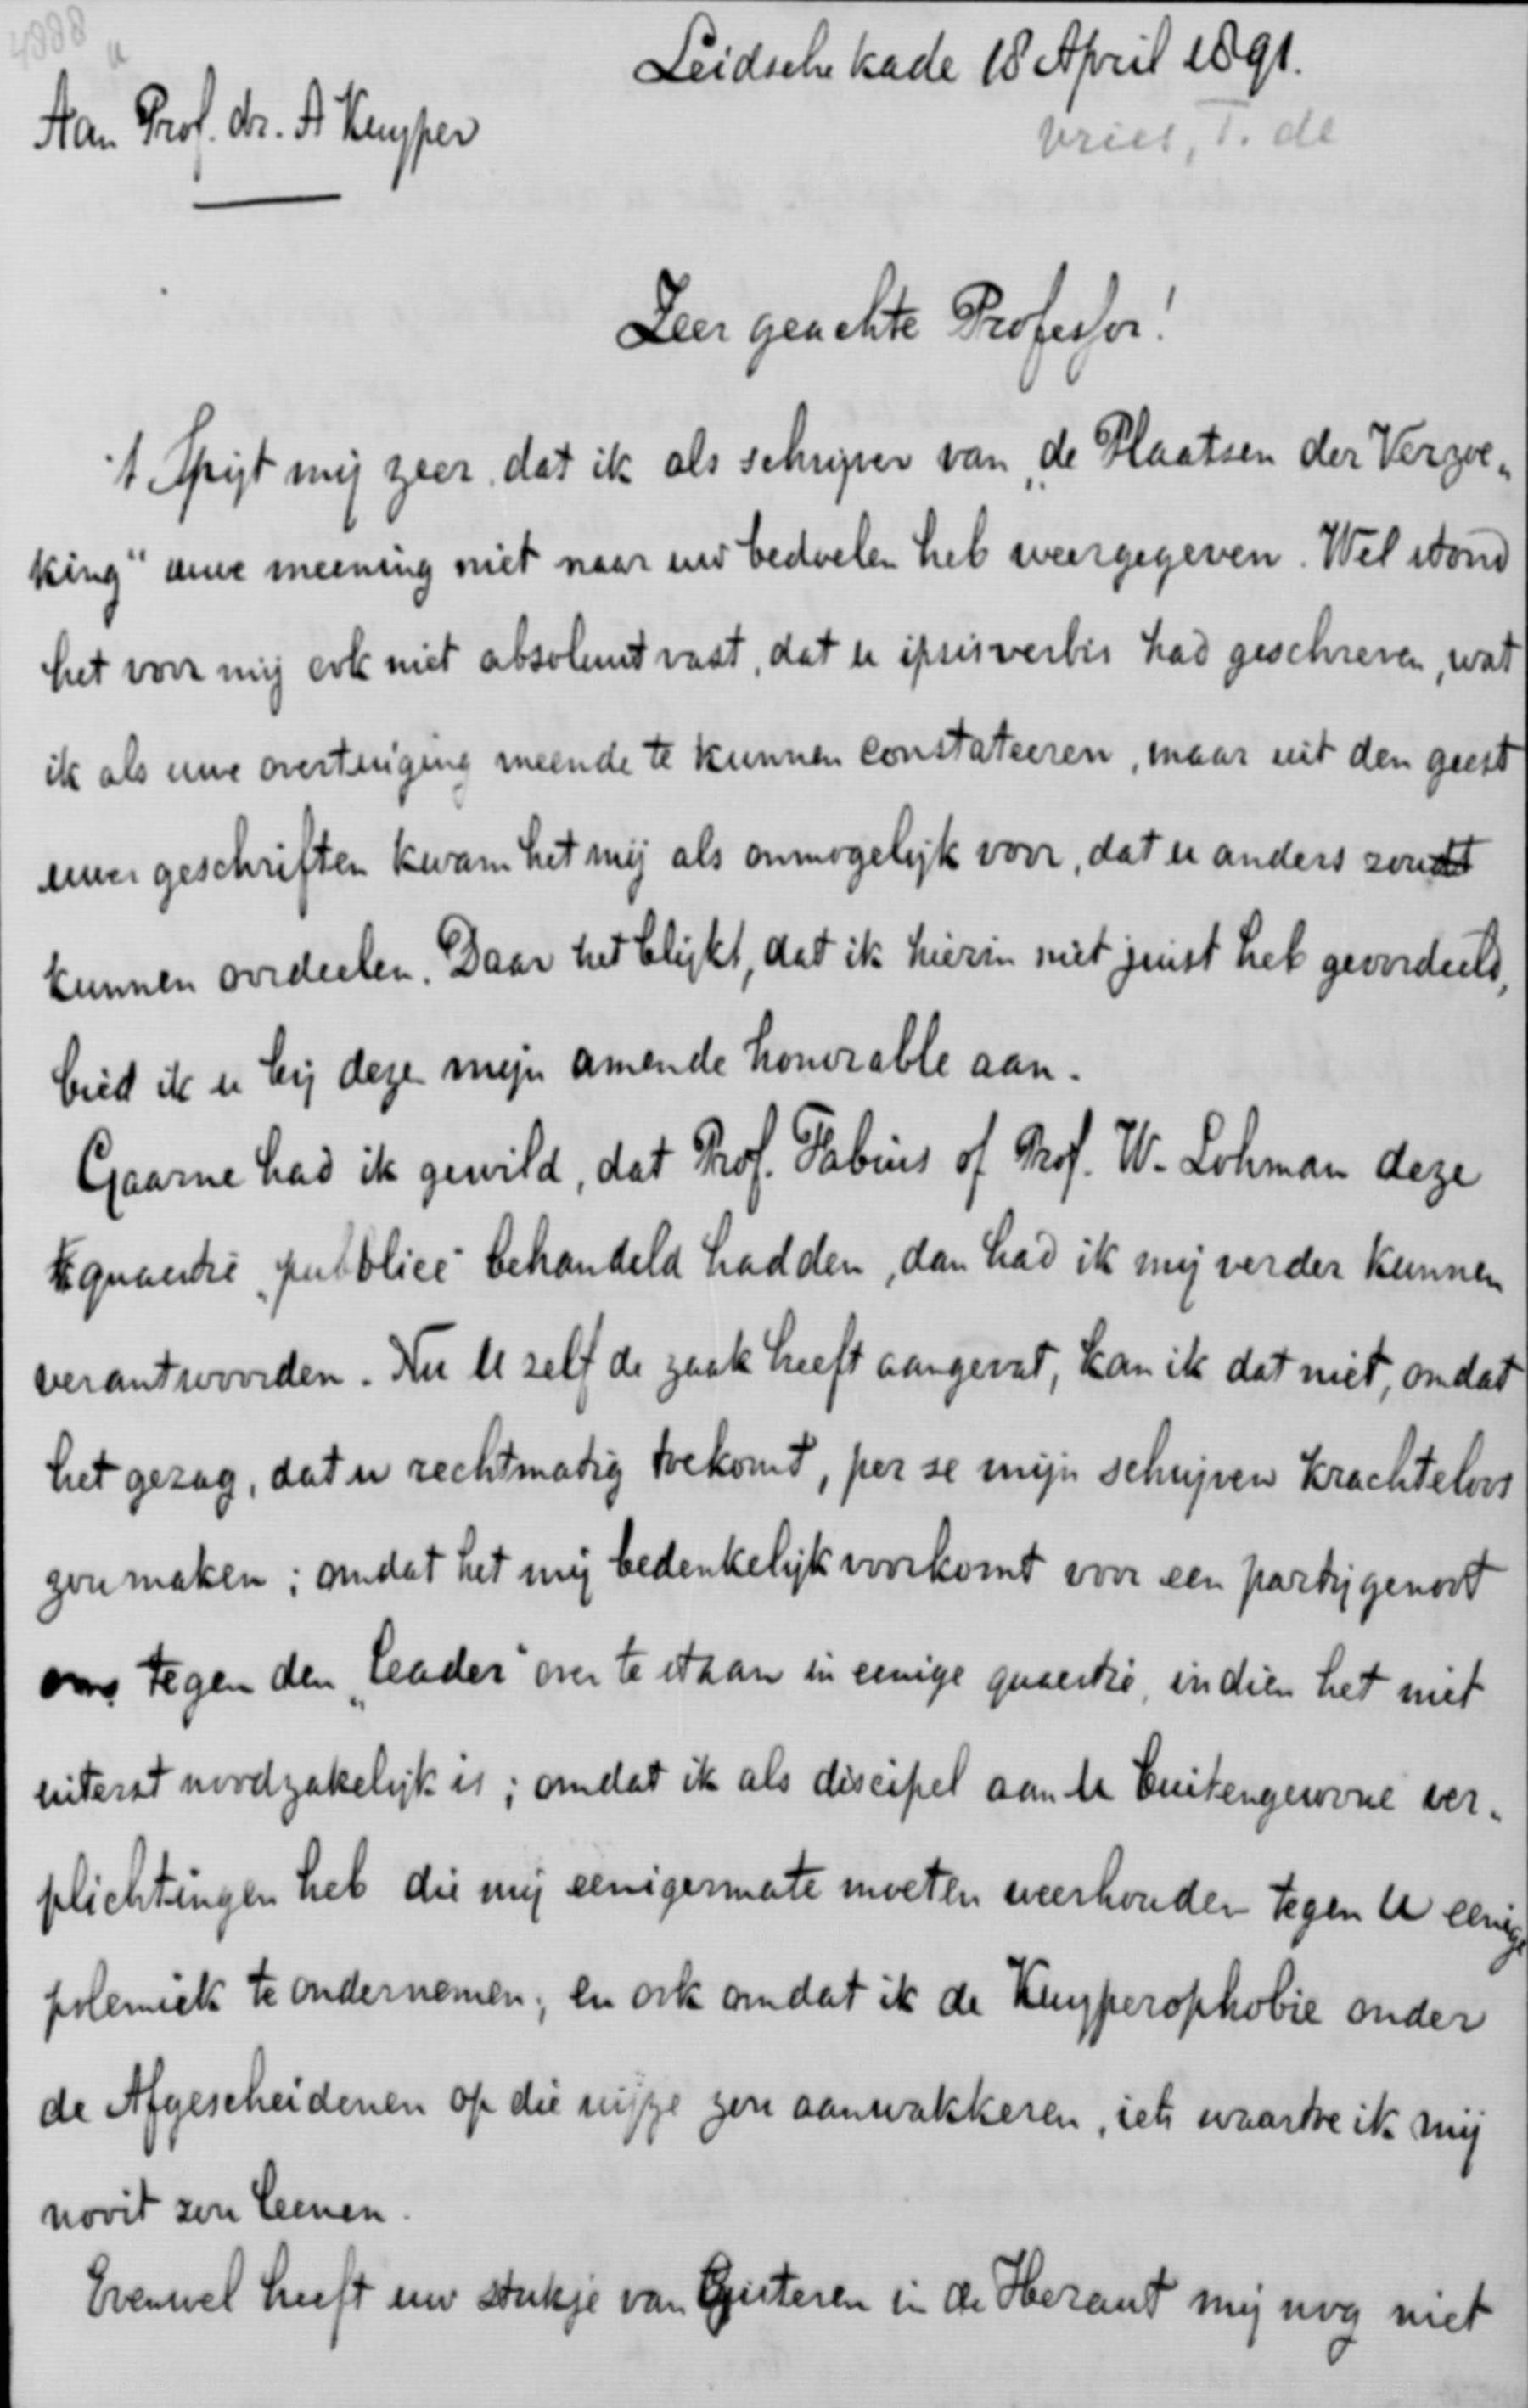 4888
Leidsche kade 18 April 1891.
Aan Prof. dr. A Kuyper
Vries, T. de
Zeer geachte Professor!
't Spijt mij zeer, dat ik als schrijver van „de Plaatsen der Verzoe„
king" uwe meening niet naar uw bedoelen heb weergegeven. Wel stond
het voor mij ook niet absoluut vast, dat u ipsisverbis had geschreven, wat
ik als uwe overtuiging meende te kunnen constateeren, maar uit den geest
uwer geschriften kwam het mij als onmogelijk voor, dat u anders zoudt
kunnen oordeelen. Daar het blijkt, dat ik hierin niet juist heb geoordeeld,
bied ik u bij deze mijn amende honorable aan.
Gaarne had ik gewild, dat Prof. Fabius of Prof. W. Lohman deze
quaestie „publice" behandeld hadden, dan had ik mij verder kunnen
verantwoorden. Nu U zelf de zaak heeft aangevat, kan ik dat niet, omdat
het gezag, dat u rechtmatig toekomt, per se mijn schrijven krachteloos
zou maken; omdat het mij bedenkelijk voorkomt voor een partijgenoot
tegen den „leader" over te staan in eenige quaestie, indien het niet
uiterst noodzakelijk is; omdat ik als discipel aan U buitengewone ver„
plichtingen heb die mij eenigermate moeten weerhouden tegen U eenige
polemiek te ondernemen; en ook omdat ik de Kuyperophobie onder
de Afgescheidenen op die wijze zou aanwakkeren, iets waartoe ik mij
nooit zou leenen.
Evenwel heeft uw stukje van Gisteren in de Heraut mij nog niet